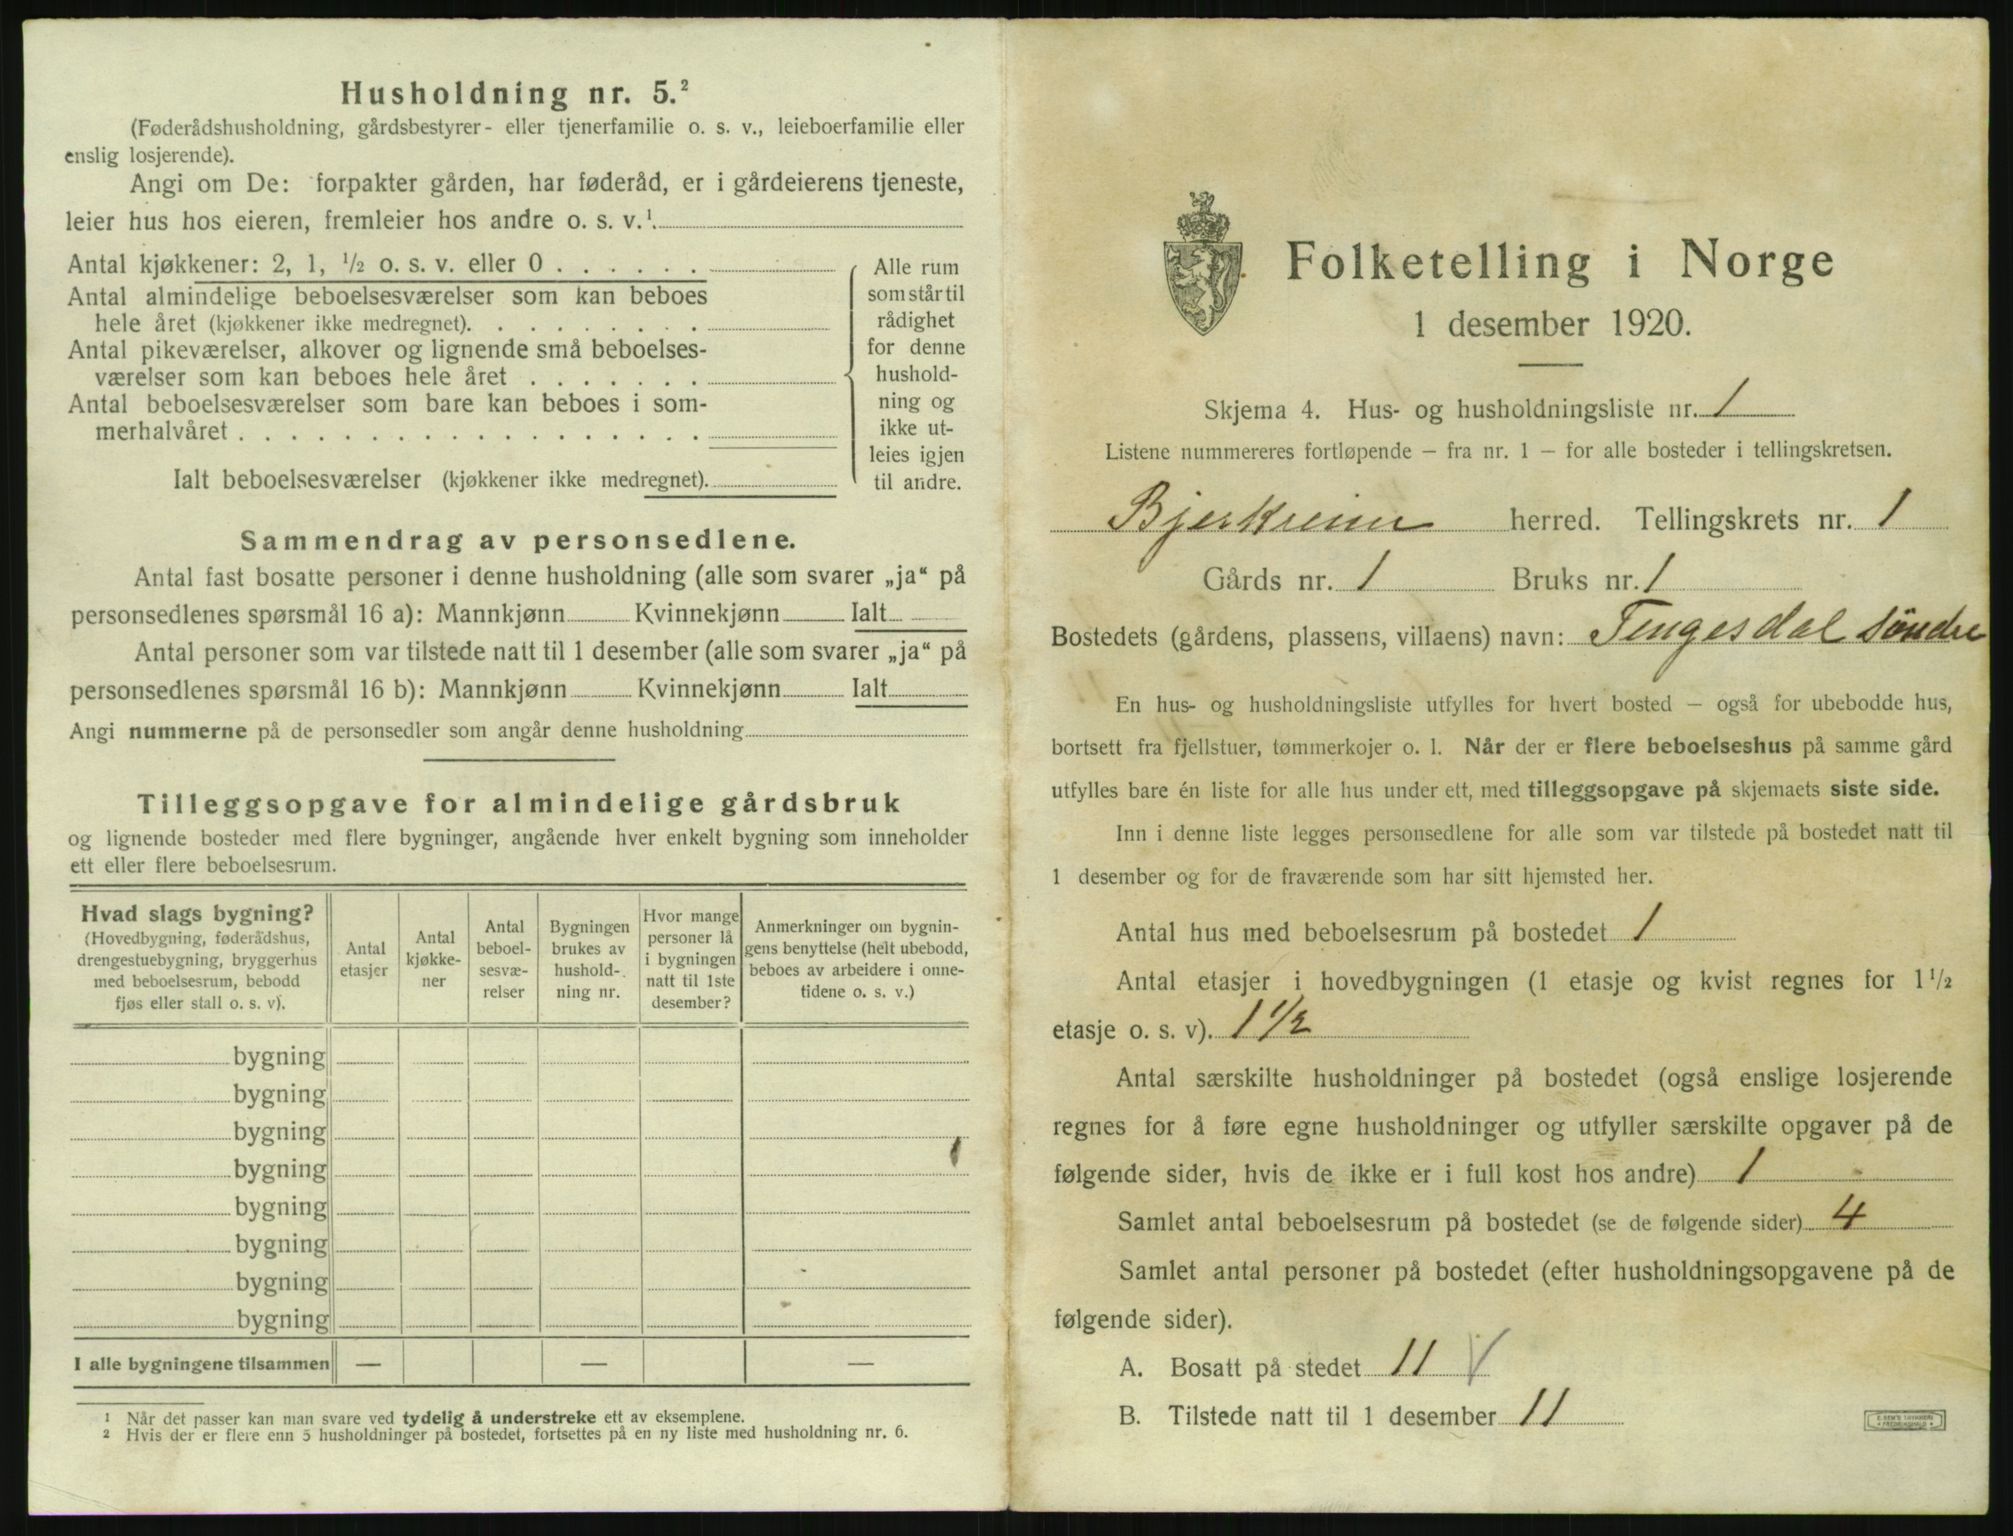 Husholdning nr. 5.²
(Føderådshusholdning, gårdsbestyrer- eller tjenerfamilie o. s. v., leieboerfamilie eller
enslig losjerende).
Angi om De: forpakter gården, har føderåd, er i gårdeierens tjeneste,
leier hus hos eieren, fremleier hos andre o. s. v.¹
Antal kjøkkener: 2, 1, ½ o. s. v. eller 0 . . . . . .
Antal almindelige beboelsesværelser som kan beboes
hele året (kjøkkener ikke medregnet). . . . . . . . .
Antal pikeværelser, alkover og lignende små beboelses-
værelser som kan beboes hele året . . . . . . .
Antal beboelsesværelser som bare kan beboes i som-
merhalvåret . . . . . . . . . . . . . . . . . .
Ialt beboelsesværelser (kjøkkener ikke medregnet).
Alle rum
som står til
rådighet
for denne
hushold-
ning og
ikke ut-
leies igjen
til andre.
Sammendrag av personsedlene.
Antal fast bosatte personer i denne husholdning (alle som svarer „ja“ på
personsedlenes spørsmål 16 a): Mannkjønn Kvinnekjønn Ialt
Antal personer som var tilstede natt til 1 desember (alle som svarer „ja“ på
personsedlenes spørsmål 16 b): Mannkjønn Kvinnekjønn Ialt
Angi nummerne på de personsedler som angår denne husholdning
Tilleggsopgave for almindelige gårdsbruk
og lignende bosteder med flere bygninger, angående hver enkelt bygning som inneholder
ett eller flere beboelsesrum.
Hvad slags bygning?
(Hovedbygning, føderådshus,
drengestuebygning, bryggerhus
med beboelsesrum, bebodd
fjøs eller stall o. s. v).
Antal
etasjer
Antal
kjøkke-
ner
Antal
beboel-
sesvæ-
relser
Bygningen
brukes av
hushold-
ning nr.
Hvor mange
personer lå
i bygningen
natt til 1ste
desember?
Anmerkninger om bygnin-
gens benyttelse (helt ubebodd,
beboes av arbeidere i onne-
tidene o. s. v.)
bygning
bygning
bygning
bygning
bygning
bygning
bygning
bygning
I alle bygningene tilsammen — — —
¹ Når det passer kan man svare ved tydelig å understreke ett av eksemplene.
² Hvis der er flere enn 5 husholdninger på bostedet, fortsettes på en ny liste med husholdning nr. 6.
Folketelling i Norge
1 desember 1920.
Skjema 4. Hus- og husholdningsliste nr. 1
Listene nummereres fortløpende – fra nr. 1 – for alle bosteder i tellingskretsen.
Bjerkreim herred. Tellingskrets nr. 1
Gårds nr. 1 Bruks nr. 1
Bostedets (gårdens, plassens, villaens) navn: Tengesdal söndre
En hus- og husholdningsliste utfylles for hvert bosted – også for ubebodde hus,
bortsett fra fjellstuer, tømmerkojer o. l. Når der er flere beboelseshus på samme gård
utfylles bare én liste for alle hus under ett, med tilleggsopgave på skjemaets siste side.
Inn i denne liste legges personsedlene for alle som var tilstede på bostedet natt til
1 desember og for de fraværende som har sitt hjemsted her.
Antal hus med beboelsesrum på bostedet 1
Antal etasjer i hovedbygningen (1 etasje og kvist regnes for 1½
etasje o. s. v). 1½
Antal særskilte husholdninger på bostedet (også enslige losjerende
regnes for å føre egne husholdninger og utfyller særskilte opgaver på de
følgende sider, hvis de ikke er i full kost hos andre) 1
Samlet antal beboelsesrum på bostedet (se de følgende sider) 4
Samlet antal personer på bostedet (efter husholdningsopgavene på de
følgende sider).
A. Bosatt på stedet 11 √
B. Tilstede natt til 1 desember 11